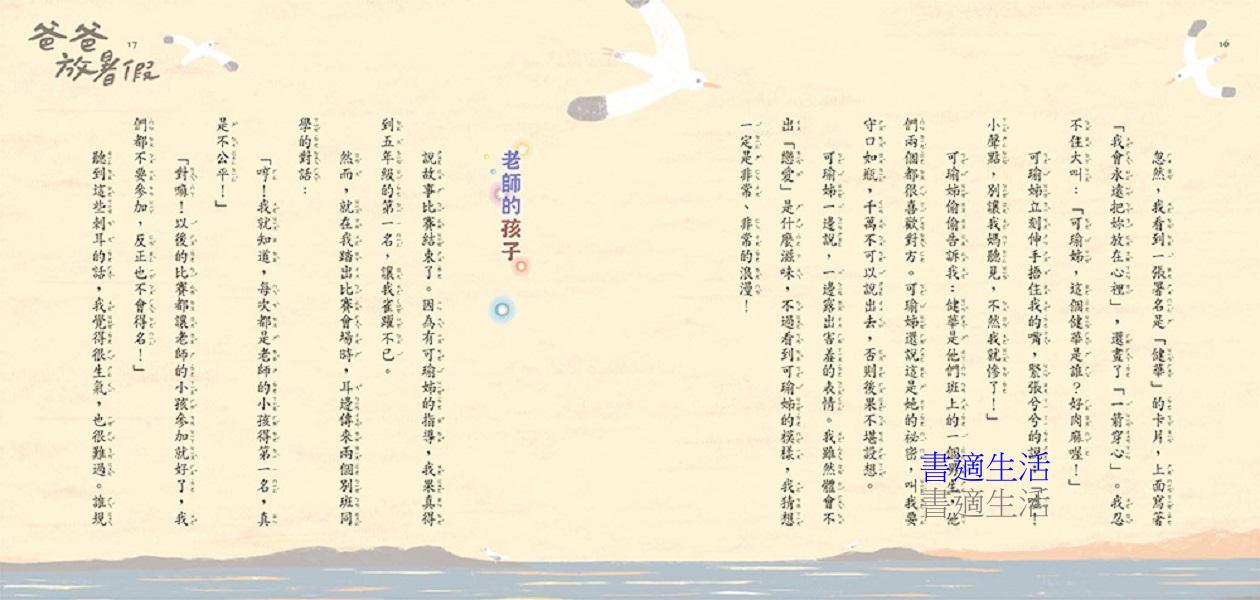 16
忽然，我看到一張署名是「健華」的卡片，上面寫著
「我會永遠把妳放在心裡」，還畫了「一箭穿心」。我忍
不住大叫：「可瑜姊，這個健華是誰？好肉麻喔！」
可瑜姊立刻伸手摀住我的嘴，緊張兮兮的說：「噓！
小聲點，別讓我媽聽見，不然我就慘了！」
可瑜姊偷偷告訴我：健華是他們班上的一個男生，他
們兩個都很喜歡對方。可瑜姊還說這是她的祕密，叫我要
守口如瓶，千萬不可以說出去，否則後果不堪設想。
可瑜姊一邊說，一邊露出害羞的表情。我雖然體會不
出「戀愛」是什麼滋味，不過看到可瑜姊的模樣，我猜想
一定是非常、非常的浪漫！
老師的孩子
說故事比賽結束了。因為有可瑜姊的指導，我果真得
到五年級的第一名，讓我雀躍不已。
然而，就在我踏出比賽會場時，耳邊傳來兩個別班同
學的對話：
「哼！我就知道，每次都是老師的小孩得第一名，真
是不公平！」
「對嘛！以後的比賽都讓老師的小孩參加就好了，我
們都不要參加，反正也不會得名！」
聽到這些刺耳的話，我覺得很生氣，也很難過。誰規
17
爸爸
放暑假
書適生活
書適生活